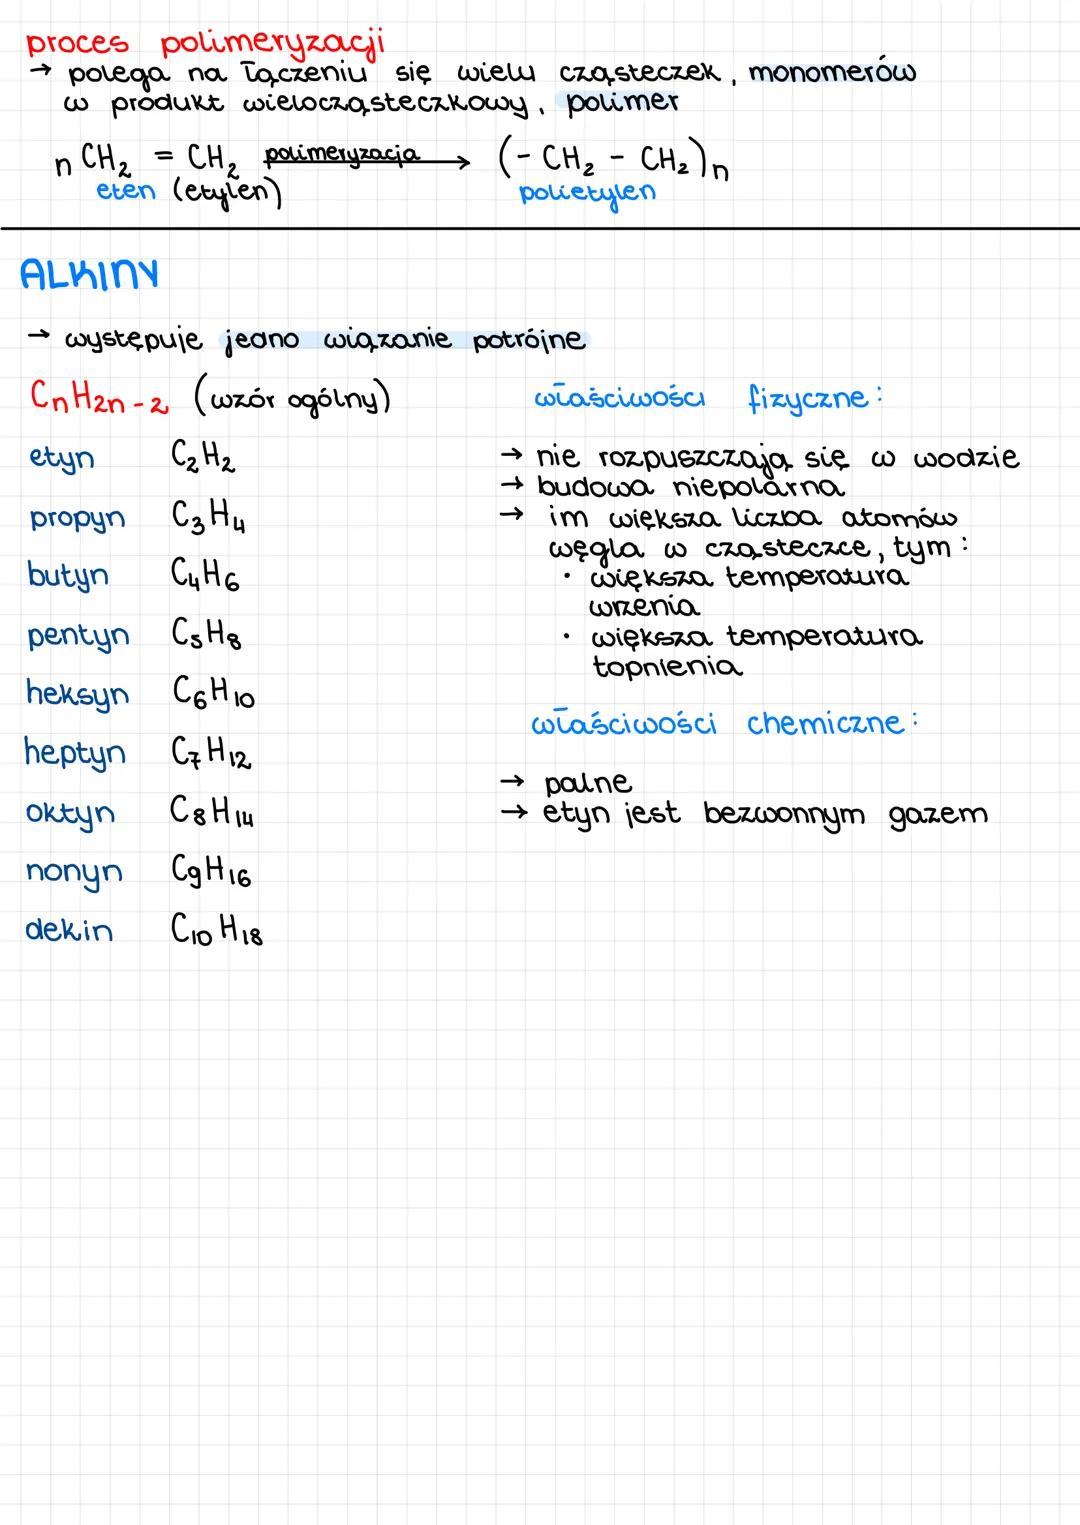 proces polimeryzacji
→ polega na łączeniu się wielu cząsteczek, monomerów
w produkt wielocząsteczkowy, polimer
n CH₂ = CH₂ polimeryzacja → (- CH₂ - CH₂)n
eten (etylen) polietylen
ALKINY
→ występuje jedno wiązanie potrójne
CnH2n-2 (wzór ogólny)
etyn C₂H₂
propyn C₃H₄
butyn C₄H₆
pentyn C₅H₈
heksyn C₆H₁₀
heptyn C₇H₁₂
oktyn C₈H₁₄
nonyn C₉H₁₆
dekin C₁₀H₁₈
właściwości fizyczne:
→ nie rozpuszczają się w wodzie
→ budowa niepolarna
→ im większa liczba atomów
węgla w cząsteczce, tym:
• większa temperatura
wrzenia
• większa temperatura
topnienia
właściwości chemiczne:
→ palne
→ etyn jest bezwonnym gazem